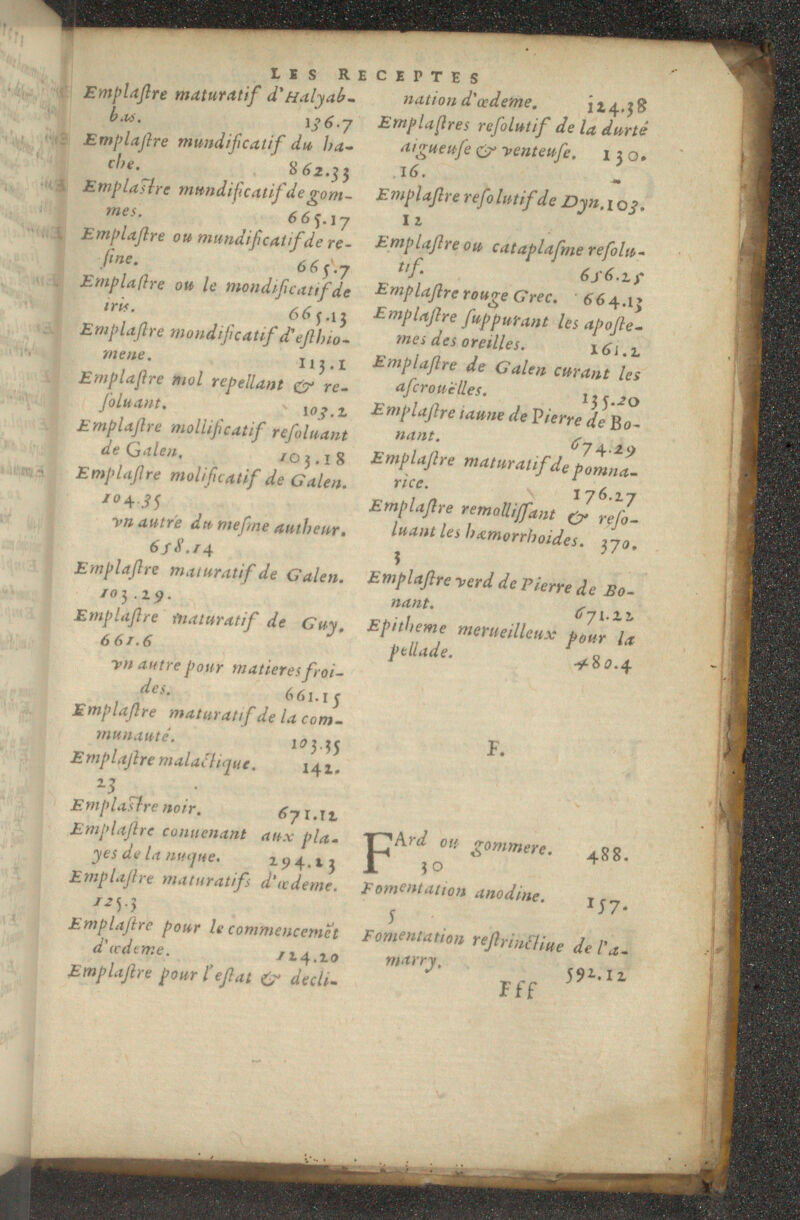 LES RECEPTES
Emplaſtre maturatif d'Halyab-
bas. 136.7
Emplaſtre mundificatif du ha-
che. 862.33
Emplaſtre mundificatif de gom-
mes. 665.17
Emplaſtre ou mundificatif de re-
ſine. 665.7
Emplaſtre ou le mondificatif de
iris. 665.13
Emplaſtre mondificatif d'eſthio-
mene. 113.1
Emplaſtre mol repellant & re-
ſoluant. 103.2
Emplaſtre mollificatif reſoluant
de Galen. 103.18
Emplaſtre molificatif de Galen.
104.35
vn autre du meſme autheur.
658.14
Emplaſtre maturatif de Galen.
103.29.
Emplaſtre maturatif de Guy.
661.6
vn autre pour matieres froi-
des. 661.15
Emplaſtre maturatif de la com-
munauté. 103.35
Emplaſtre malactique. 142.
23
Emplaſtre noir. 671.12
Emplaſtre conuenant aux pla-
yes de la nuque. 294.23
Emplaſtre maturatifs d'œdeme.
125.3
Emplaſtre pour le commencemẽt
d'œdeme. 124.20
Emplaſtre pour l'eſtat & decli-
nation d'œdeme. 124.38
Emplaſtres reſolutif de la durté
aigueuſe & venteuſe. 130.
16.
Emplaſtre reſolutif de Dyn. 103.
12
Emplaſtre ou cataplaſme reſolu-
tif. 656.25
Emplaſtre rouge Grec. 664.13
Emplaſtre ſuppurant les apoſte-
mes des oreilles. 161.2
Emplaſtre de Galen curant les
aſcrouëlles. 135.20
Emplaſtre iaune de Pierre de Bo-
nant. 674.29
Emplaſtre maturatif de pomna-
rice. 176.27
Emplaſtre remolliſſant & reſo-
luant les hæmorrhoides. 370.
3
Emplaſtre verd de Pierre de Bo-
nant. 671.22
Epitheme merueilleux pour la
pellade. 480.4
F.
FArd ou gommere. 488.
30
Fomentation anodine. 157.
5
Fomentation reſtrinctiue de l'a-
marry. 592.12
Fff